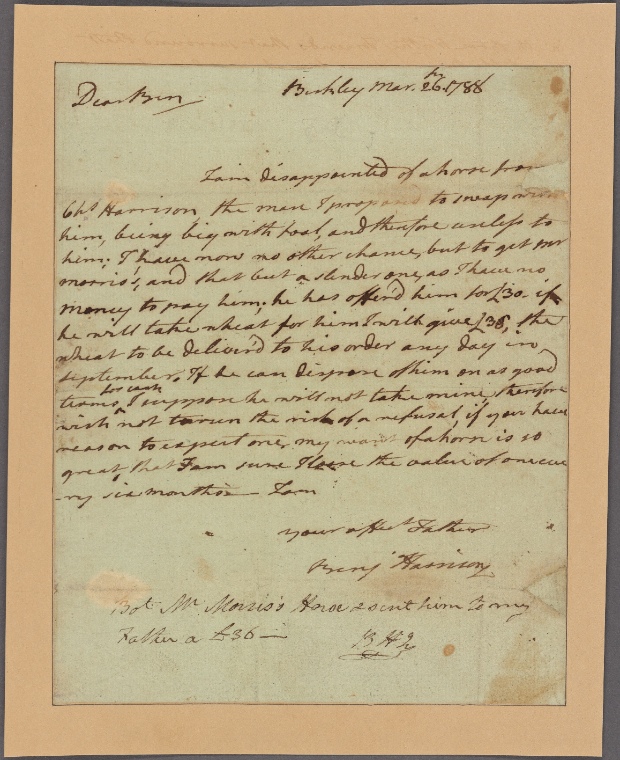 Dear Ben
Berkley Mar. 26th 1788
I am disappointed of a horse from
Chs Harrison the mare I proposed to swap with
him, being big with foal, and therefore useless to
him; I have now no other chance, but to get Mr
Morris's, and that but a slender one, as I have no
money to pay him; he has offer'd him for £30. if
he will take wheat for him I will give £36, the
wheat to be deliver'd to his order any day in
September. If he can dispose of him on as good
terms for cash, I suppose he will not take mine, therefore
wish not to run the risk of a refusal, if you have
reason to expect one, my want of a horse is so
great, that I am sure I lose the value of one eve
-ry six months — I am
your affect Father
Benj Harrison
Bot Mr Morris's Horse & sent him to my
Father a £36 —
B H